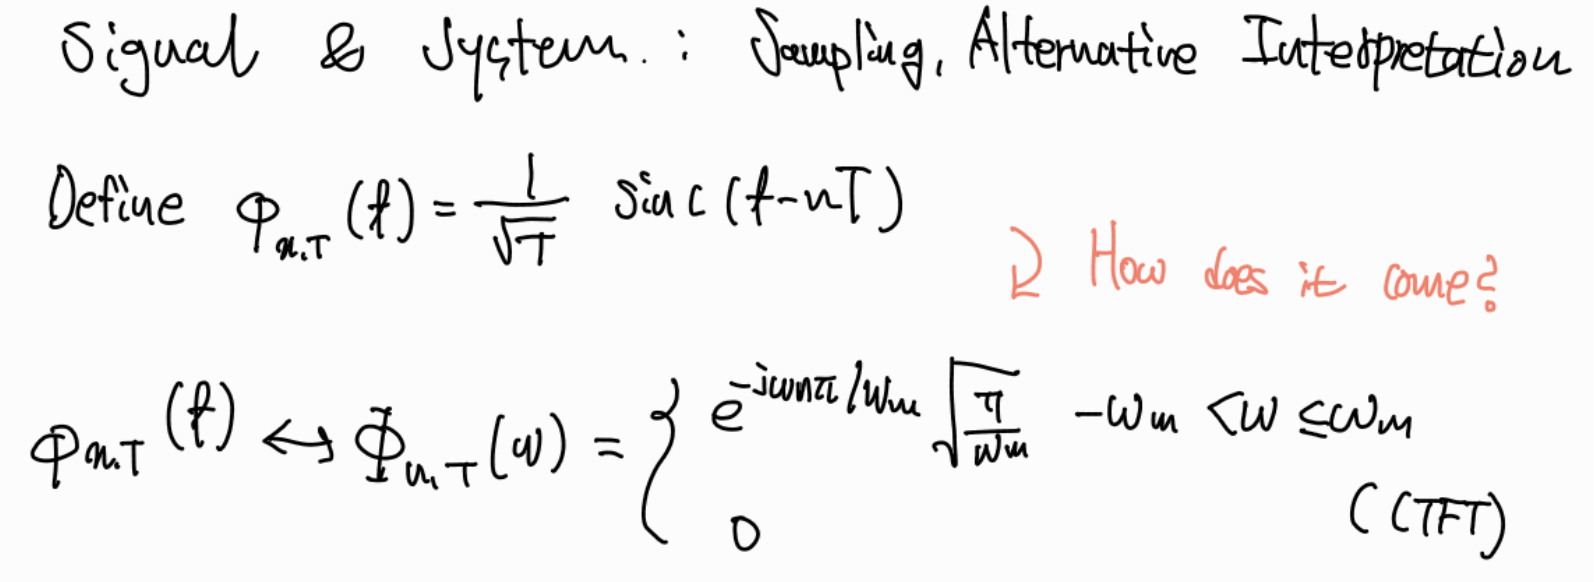 Signal & System. : Sampling, Alternative Interpretation
Define φ_{n,T}(t) = 1/√T sinc(t-nT)
How does it come?
φ_{n,T}(t) ↔ Φ_{n,T}(ω) = { e^{-jωnπ/ω_m} √(π/ω_m) -ω_m < ω ≤ ω_m
0
(CTFT)